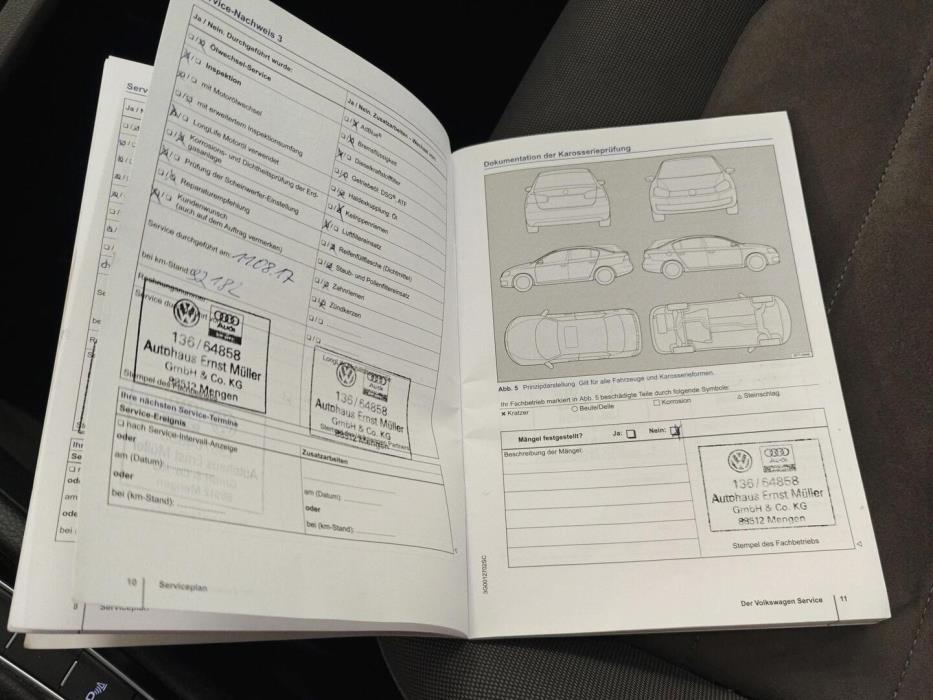 Service-Nachweis 3
Ja / Nein. Durchgeführt wurde:
Ölwechsel-Service
Inspektion
mit Motorölwechsel
mit erweitertem Inspektionsumfang
LongLife Motoröl verwendet
Korrosions- und Dichtheitsprüfung der Erd-
gasanlage
Prüfung der Scheinwerfer-Einstellung
Reparaturempfehlung
Kundenwunsch
(auch auf dem Auftrag vermerken)
Service durchgeführt am: 11.08.17
bei km-Stand: 92182
Rechnungsnummer
Service du
136/64858
Autohaus Ernst Müller
GmbH & Co. KG
88512 Mengen
Stempel des Fachbetriebs
Ja / Nein. Zusatzarbeiten - Wechsel von:
AdBlue®
Bremsflüssigkeit
Dieselkraftstofffilter
Getriebeöl: DSG®, ATF
Haldexkupplung: Öl
Keilrippenriemen
Luftfiltereinsatz
Reifenfüllflasche (Dichtmittel)
Staub- und Pollenfiltereinsatz
Zahnriemen
Zündkerzen
Audi
136/64858
Autohaus Ernst Müller
GmbH & Co. KG
88512 Mengen
Ihre nächsten Service-Termine
Service-Ereignis
nach Service-Intervall-Anzeige
oder
am (Datum):
oder
bei (km-Stand):
Zusatzarbeiten
am (Datum):
oder
bei (km-Stand):
10 Serviceplan
Dokumentation der Karosserieprüfung
Abb. 5 Prinzipdarstellung: Gilt für alle Fahrzeuge und Karosserieformen.
Ihr Fachbetrieb markiert in Abb. 5 beschädigte Teile durch folgende Symbole:
× Kratzer ○ Beule/Delle □ Korrosion △ Steinschlag
Mängel festgestellt? Ja: Nein:
Beschreibung der Mängel:
136/64858
Autohaus Ernst Müller
GmbH & Co. KG
88512 Mengen
Stempel des Fachbetriebs
3G0012702SC
Der Volkswagen Service 11